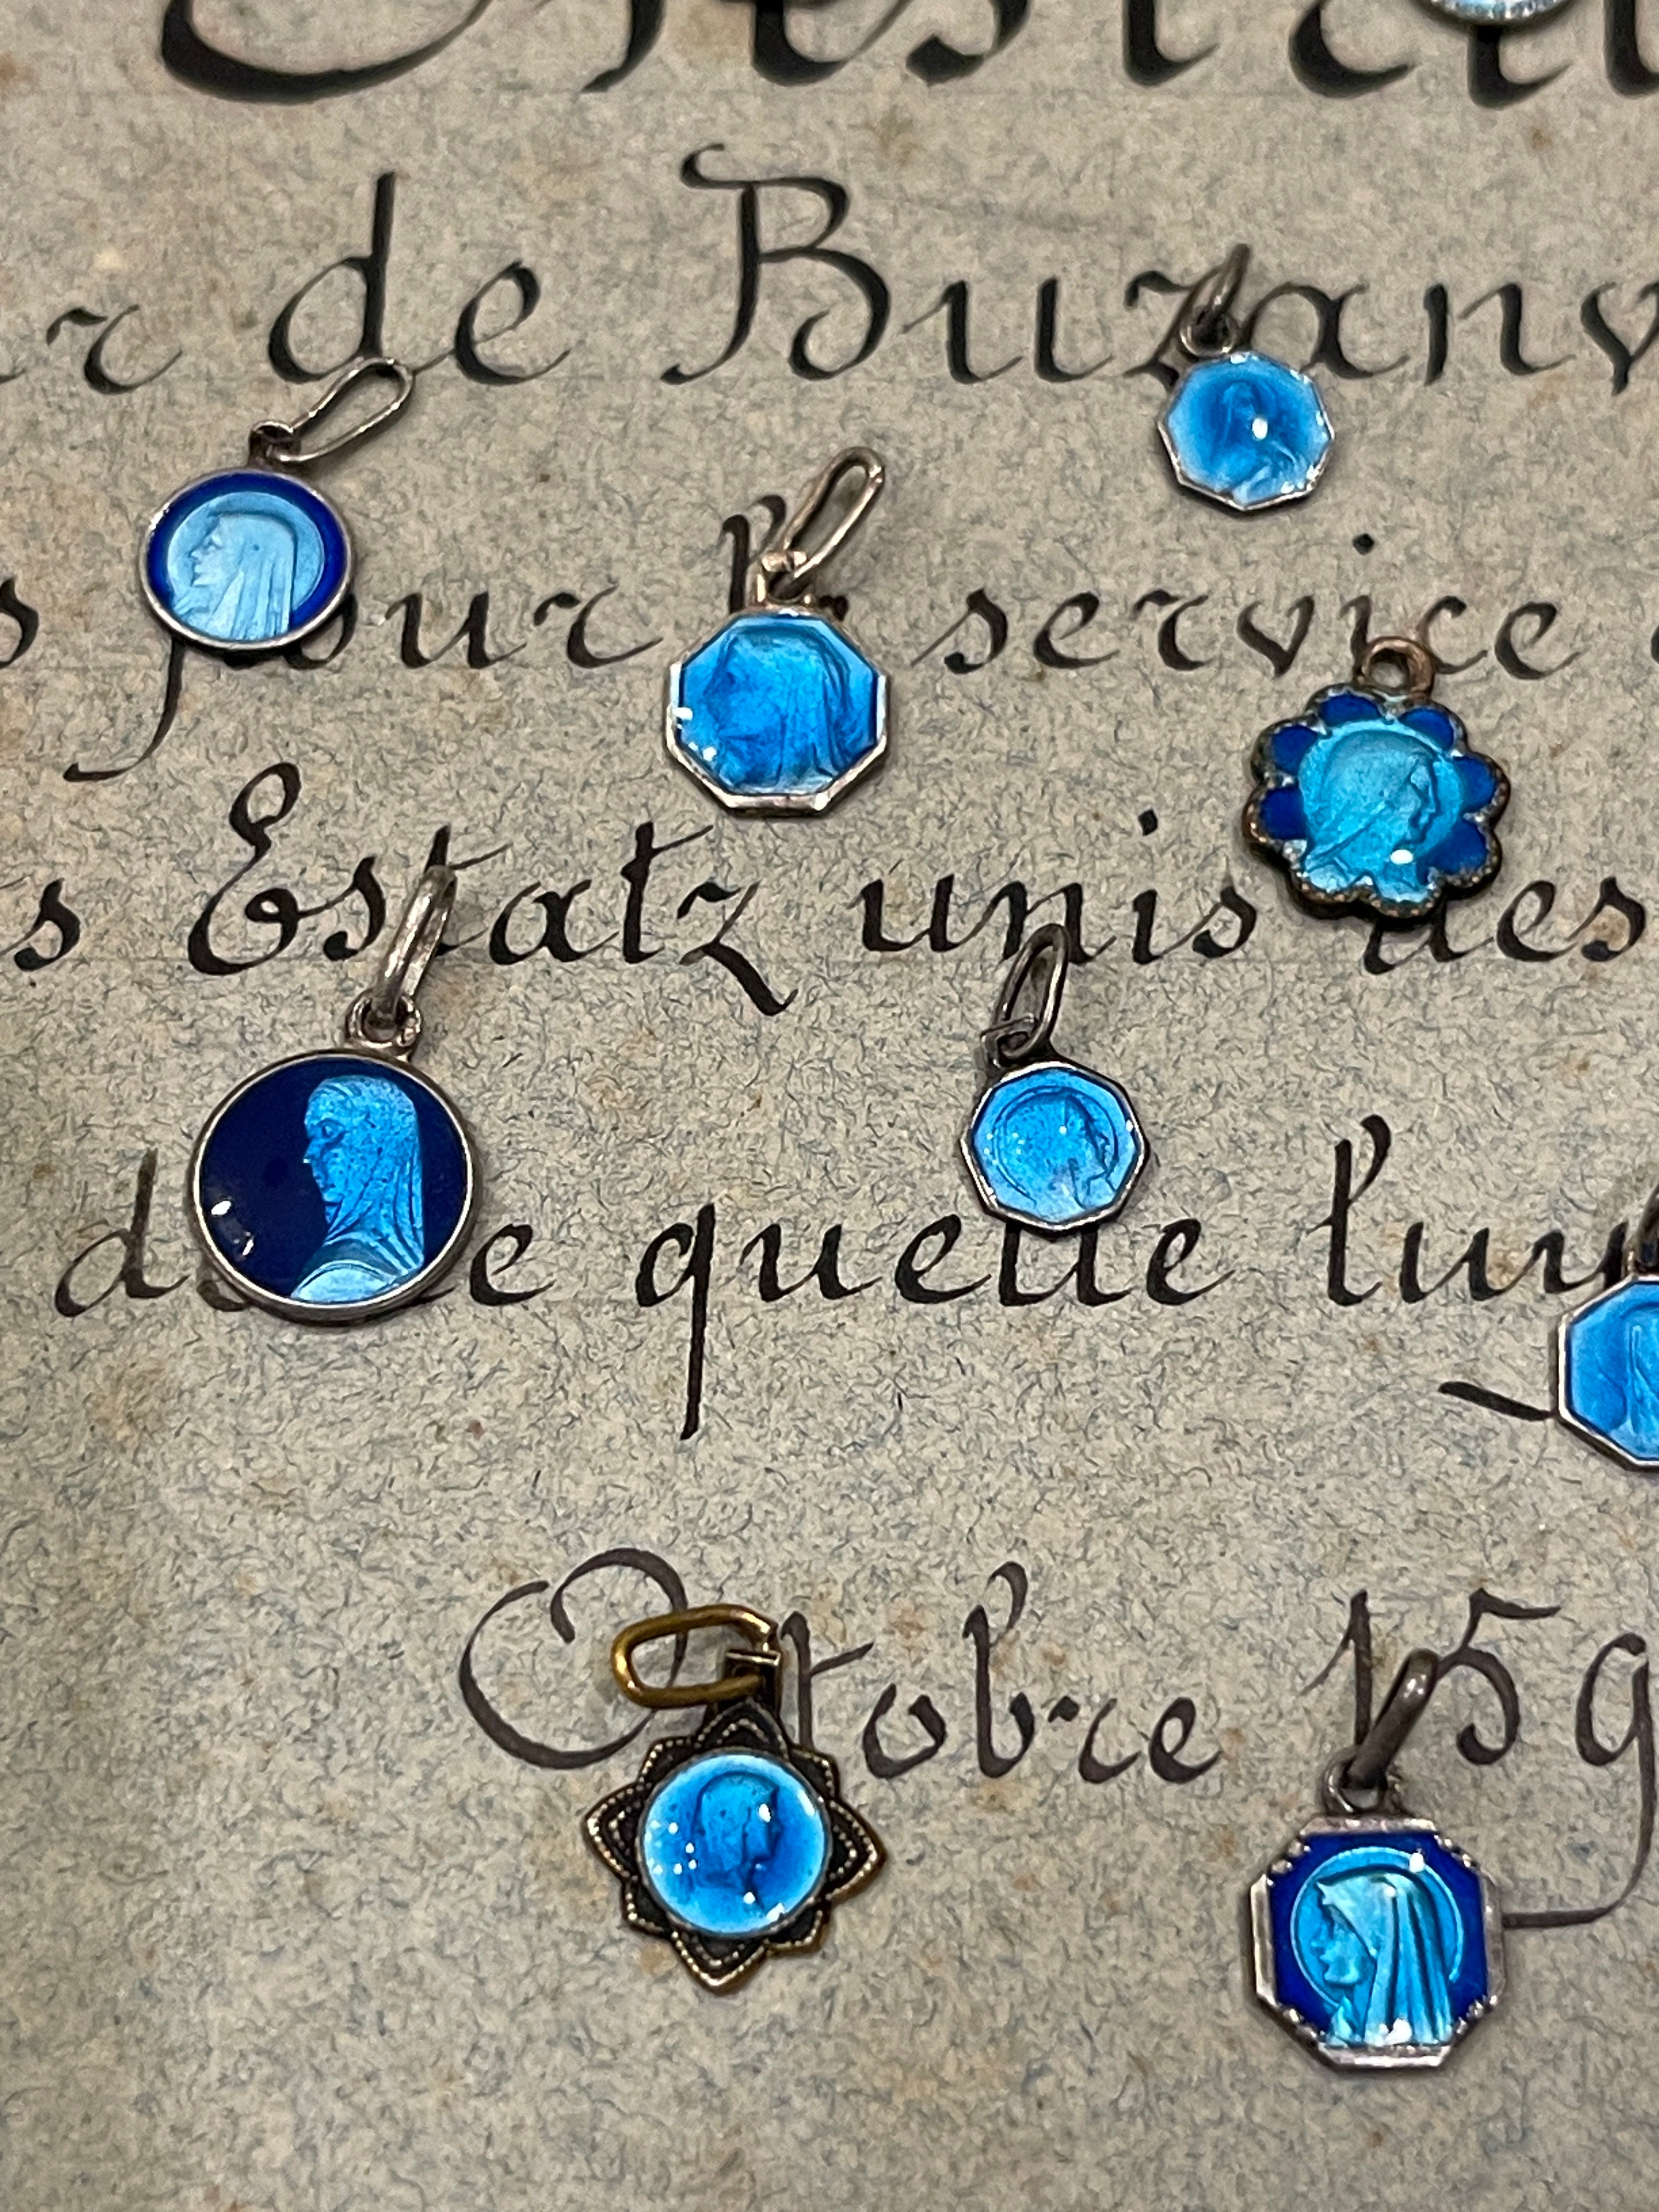 de Buzanv
s pour service
s Estatz unis des
quelle luy
Octobre 159